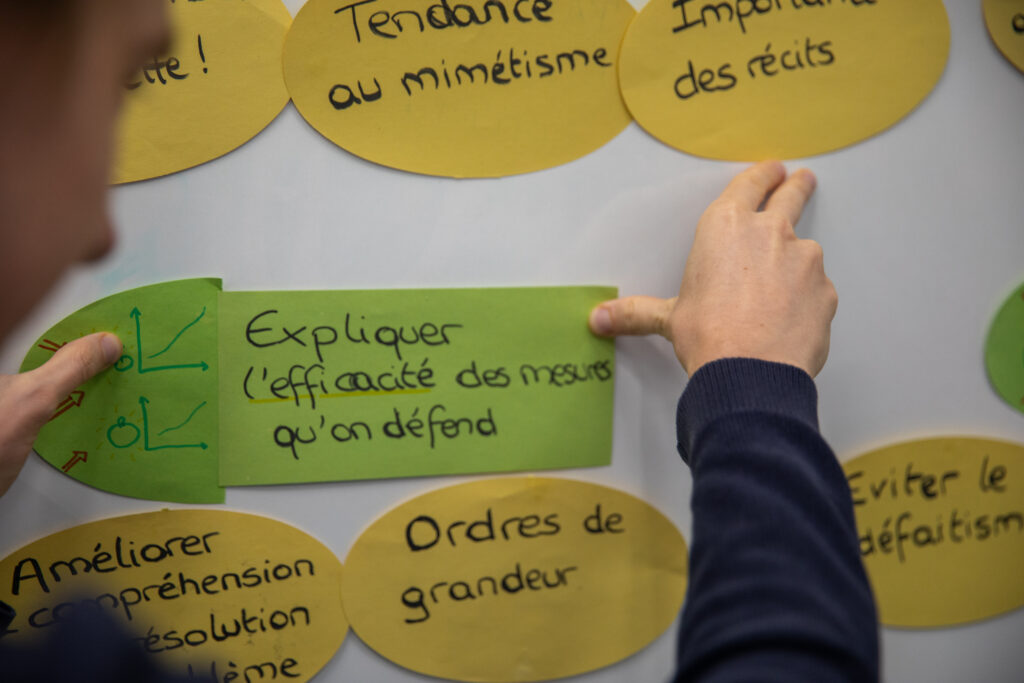 Tendance
au mimétisme
des récits
Expliquer
l'efficacité des mesures
qu'on défend
Améliorer
compréhension
résolution
Ordres de
grandeur
Eviter le